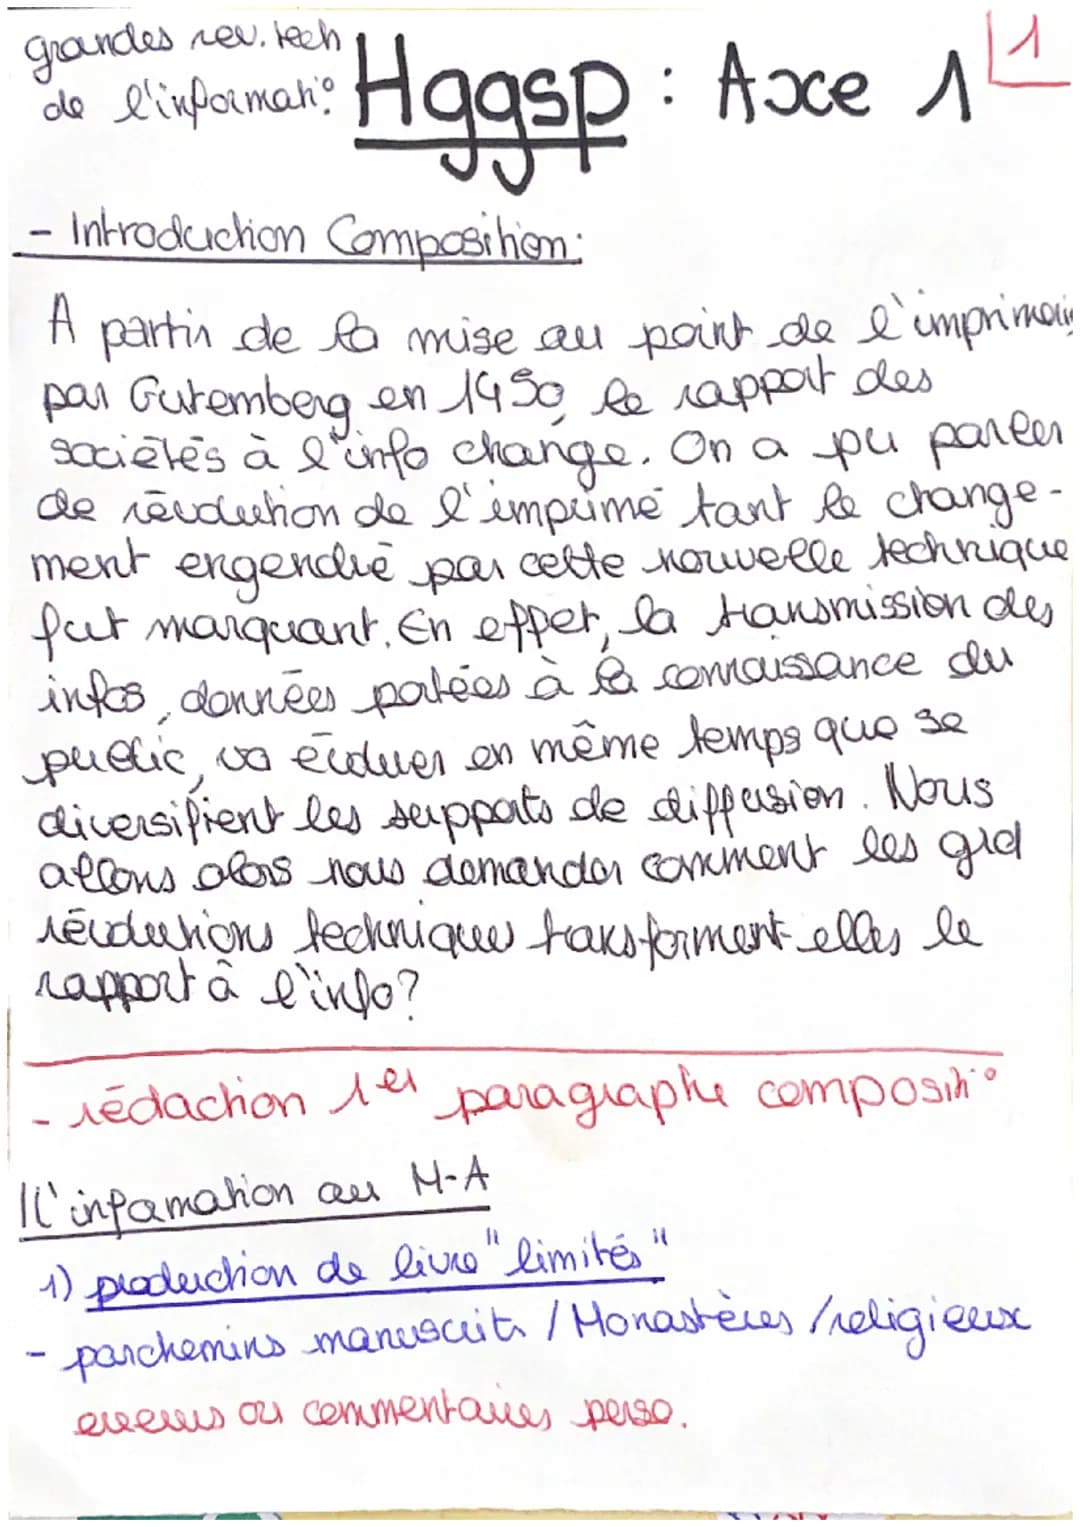 grandes rev. tech
de l'informati°
Hggsp : Axe 1
1
- Introduction Composition:
A partir de la mise au point de l'imprimerie
par Gutemberg en 1450, le rapport des
sociétés à l'info change. On a pu parler
de révolution de l'imprimé tant le change-
ment engendré par cette nouvelle technique
fut marquant. En effet, la transmission des
infos, données portées à la connaissance du
public, va évoluer en même temps que se
diversifient les supports de diffusion. Nous
allons alors nous demander comment les grd
révolutions techniques transforment-elles le
rapport à l'info?
- rédaction 1er paragraphe compositi°
I l'information au M-A
1) production de livre "limités"
- parchemins manuscrits / Monastères / religieux
erreurs ou commentaires perso.